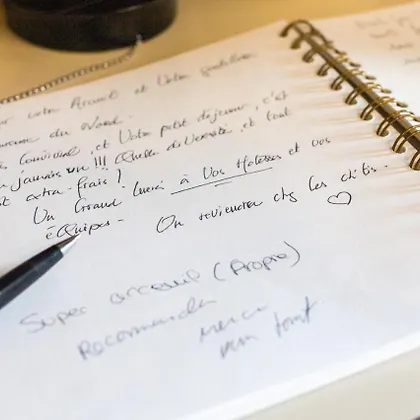 votre Accueil et Votre
du Nord.
Convivial, et Votre petit déjeuner, c'est
jamais vu !!! Quelle diversité, et tout
est extra-frais !
Un Grand Merci à Vos Hotesses et vos
équipes - On reviendra chez les ch'tis.
Super acceuil (Propre)
Recommander
Merci
pour tout